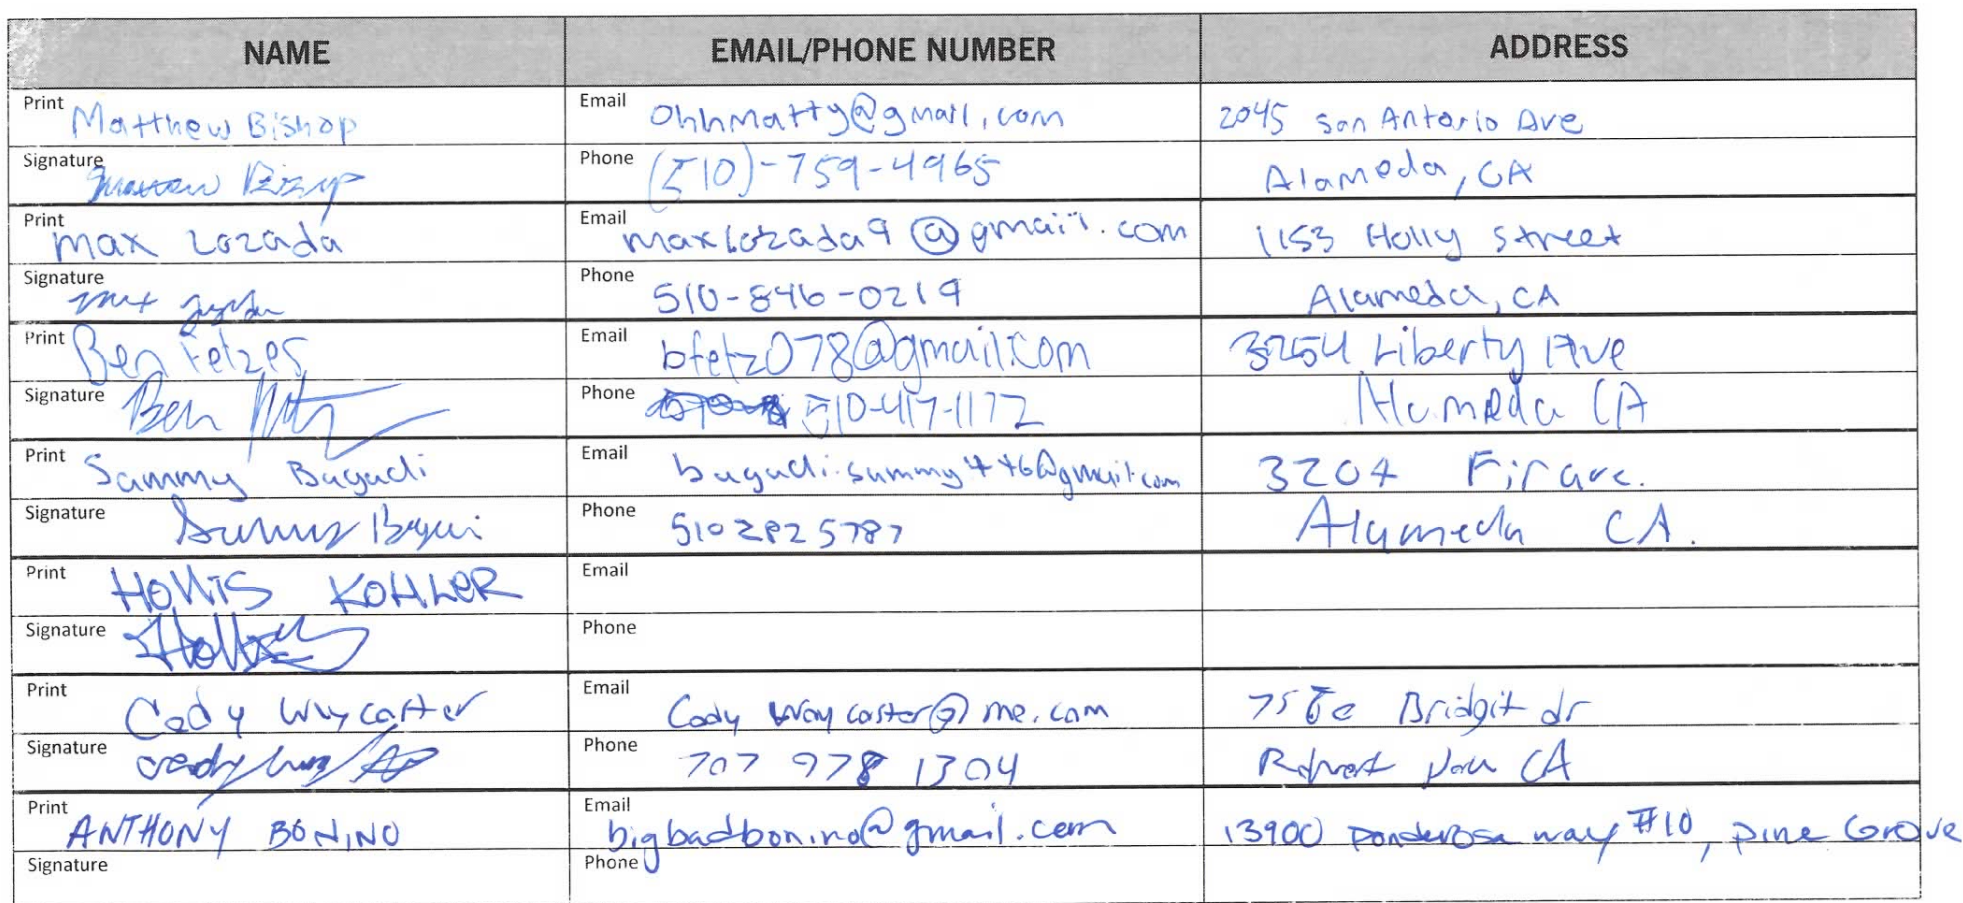 NAME EMAIL/PHONE NUMBER ADDRESS
Print Matthew Bishop Email Ohhmatty@gmail.com 2045 San Antonio Ave
Signature Phone (510)-759-4965 Alameda, CA
Print max Lozada Email maxlozada9@gmail.com 1153 Holly Street
Signature Phone 510-846-0219 Alameda, CA
Print Ben Fetzer Email bfetz078@gmail.com 3254 Liberty Ave
Signature Ben Phone 510-417-1172 Alameda CA
Print Sammy Bagadi Email bagadi.sammy446@gmail.com 3204 Fir ave.
Signature Phone 5102825787 Alameda CA.
Print HOLLIS KOHLER Email
Signature Phone
Print Cody Waycaster Email Cody Waycaster@me.com Bridgit dr
Signature Phone 707 978 1304 CA
Print ANTHONY BONINO Email bigbadbonino@gmail.com 13900 Ponderosa way #10, Pine Grove
Signature Phone